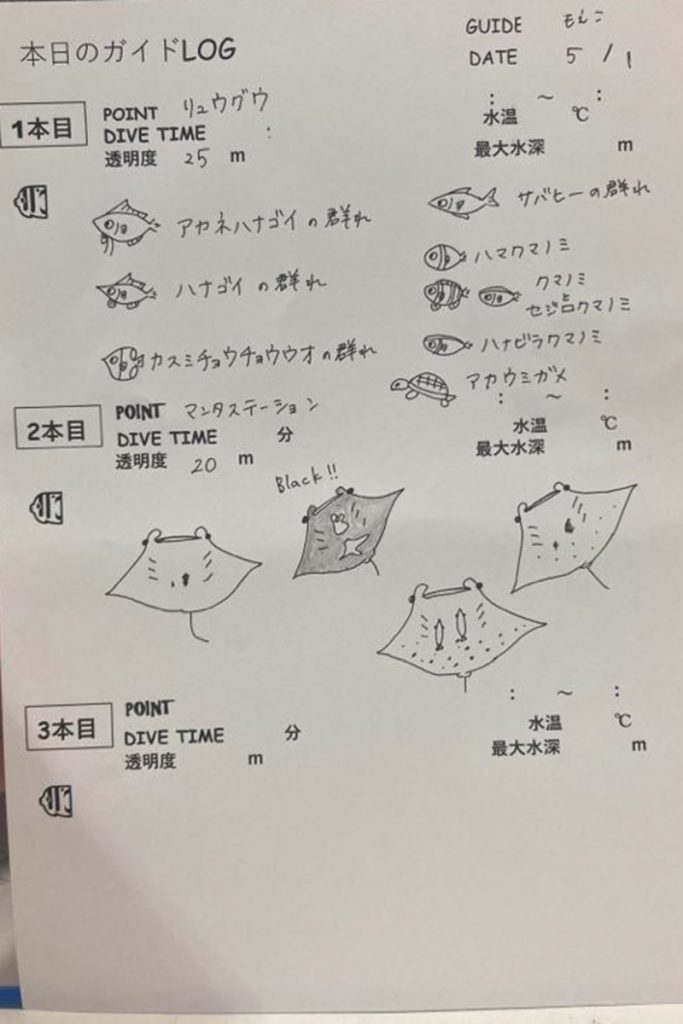 本日のガイドLOG
GUIDE もえこ
DATE 5 / 1
1本目
POINT リュウグウ
DIVE TIME :
透明度 25 m
: ~ :
水温 ℃
最大水深 m
アカネハナゴイの群れ
ハナゴイの群れ
カスミチョウチョウウオの群れ
サバヒーの群れ
ハマクマノミ
クマノミ
と
セジロクマノミ
ハナビラクマノミ
アカウミガメ
2本目
POINT マンタステーション
DIVE TIME 分
透明度 20 m
: ~ :
水温 ℃
最大水深 m
Black!!
3本目
POINT
DIVE TIME 分
透明度 m
: ~ :
水温 ℃
最大水深 m